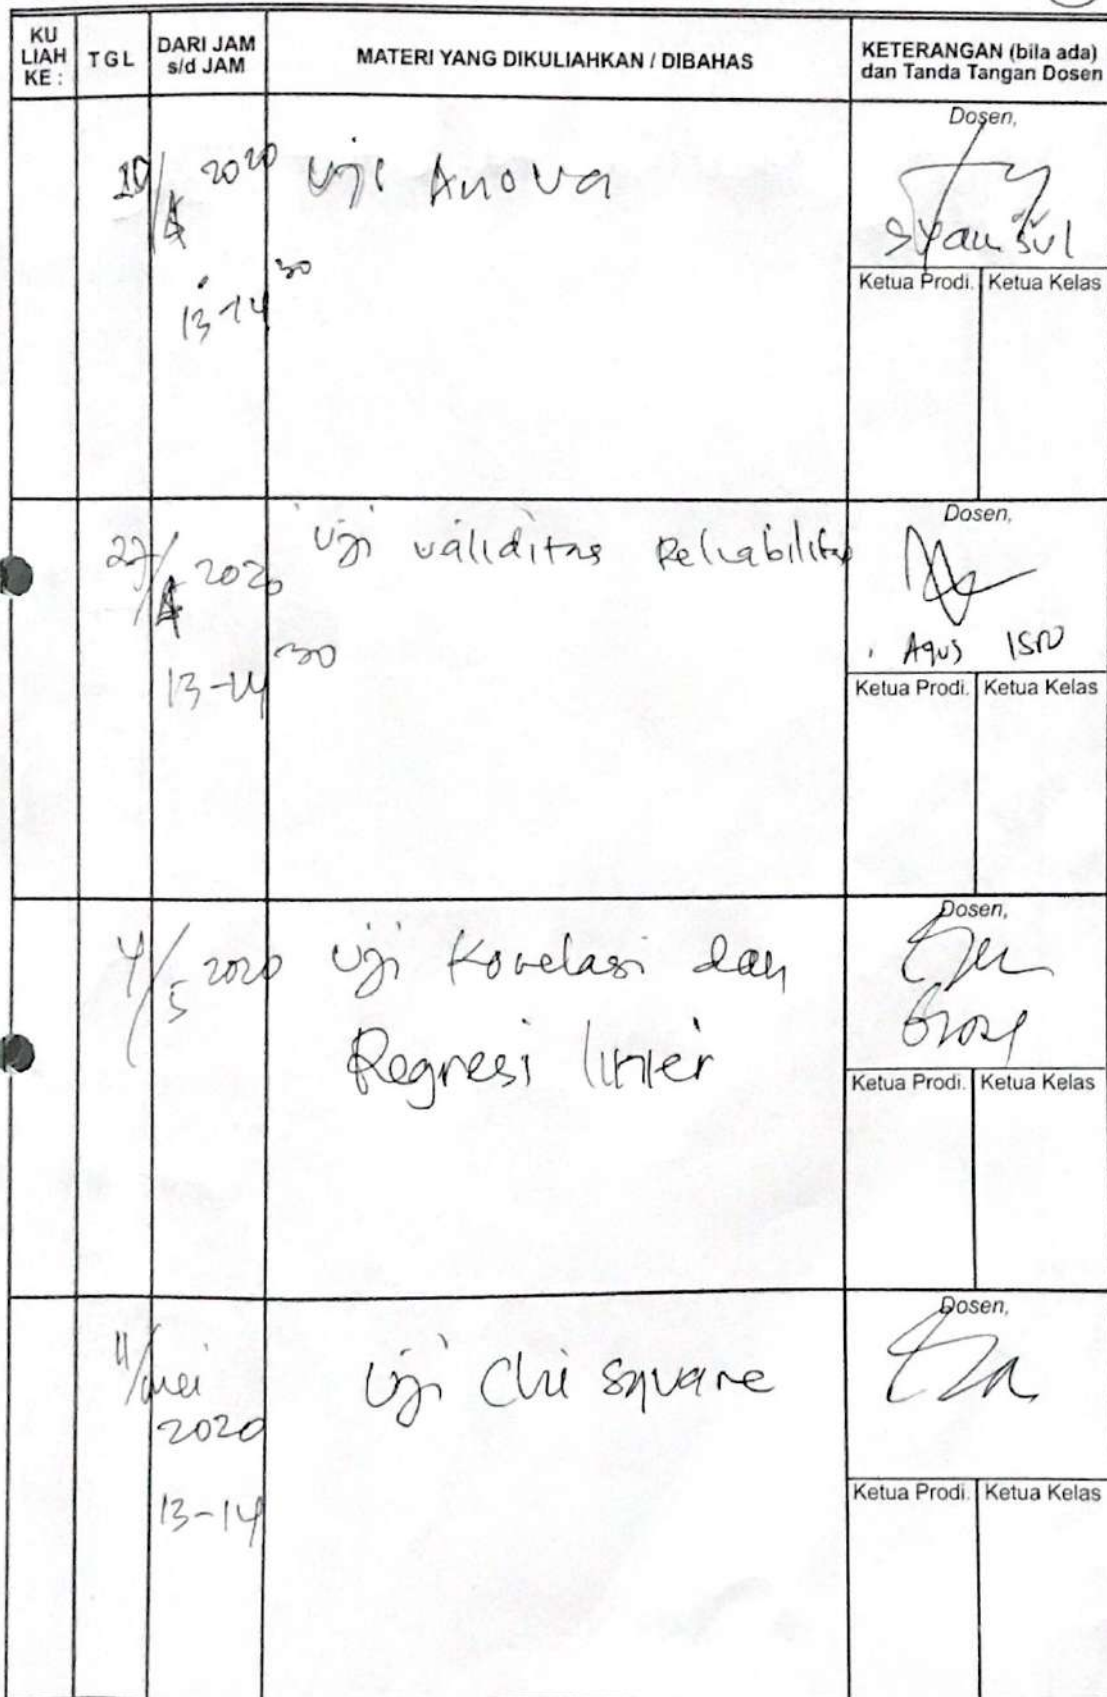 KU
LIAH
KE :
TGL
DARI JAM
s/d JAM
MATERI YANG DIKULIAHKAN / DIBAHAS
KETERANGAN (bila ada)
dan Tanda Tangan Dosen
2020 Uji Anova
13-14 30
Dosen,
Syamsul
Ketua Prodi. Ketua Kelas
2020 Uji validitas Reliabilitas
13-14 30
Dosen,
Agus
Ketua Prodi. Ketua Kelas
4/5 2020 Uji Korelasi dan
Regresi linier
Dosen,
Ketua Prodi. Ketua Kelas
11/mei Uji Chi Square
2020
13-14
Dosen,
Ketua Prodi. Ketua Kelas